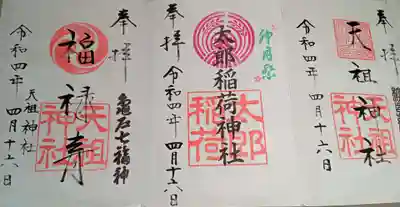 奉拝
天祖神社
天祖神社
令和四年 四月十六日
奉拝
神月祭
太郎稲荷神社
太郎稲荷
令和四年 四月十六日
奉拝
福禄寿
亀戸七福神
天祖神社
天祖神社
令和四年 四月十六日